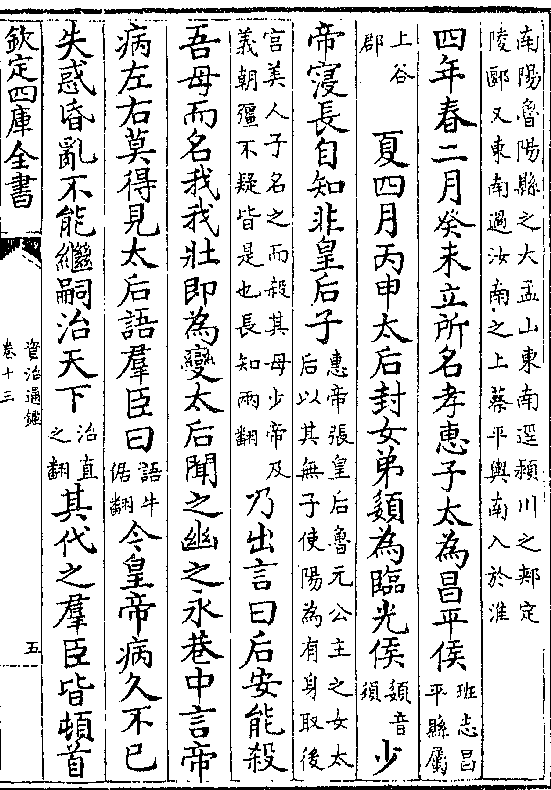 南陽魯陽縣之大盂山東南逕潁川之郟定
陵郾又東南過汝南之上蔡平輿南入於淮
四年春二月癸未立所名孝惠子太為昌平侯班志昌
平縣屬
上谷
郡夏四月丙申太后封女弟嬃為臨光侯嬃音
須少
帝寖長自知非皇后子惠帝張皇后魯元公主之女太
后以其無子使陽為有身取後
宮美人子名之而殺其母少帝及
義朝彊不疑皆是也長知兩翻乃出言曰后安能殺
吾母而名我我壯即為變太后聞之幽之永巷中言帝
病左右莫得見太后語羣臣曰語牛
倨翻今皇帝病久不已
失惑昏亂不能繼嗣治天下治直
之翻其代之羣臣皆頓首
欽定四庫全書
資治通鑑
卷十三
五